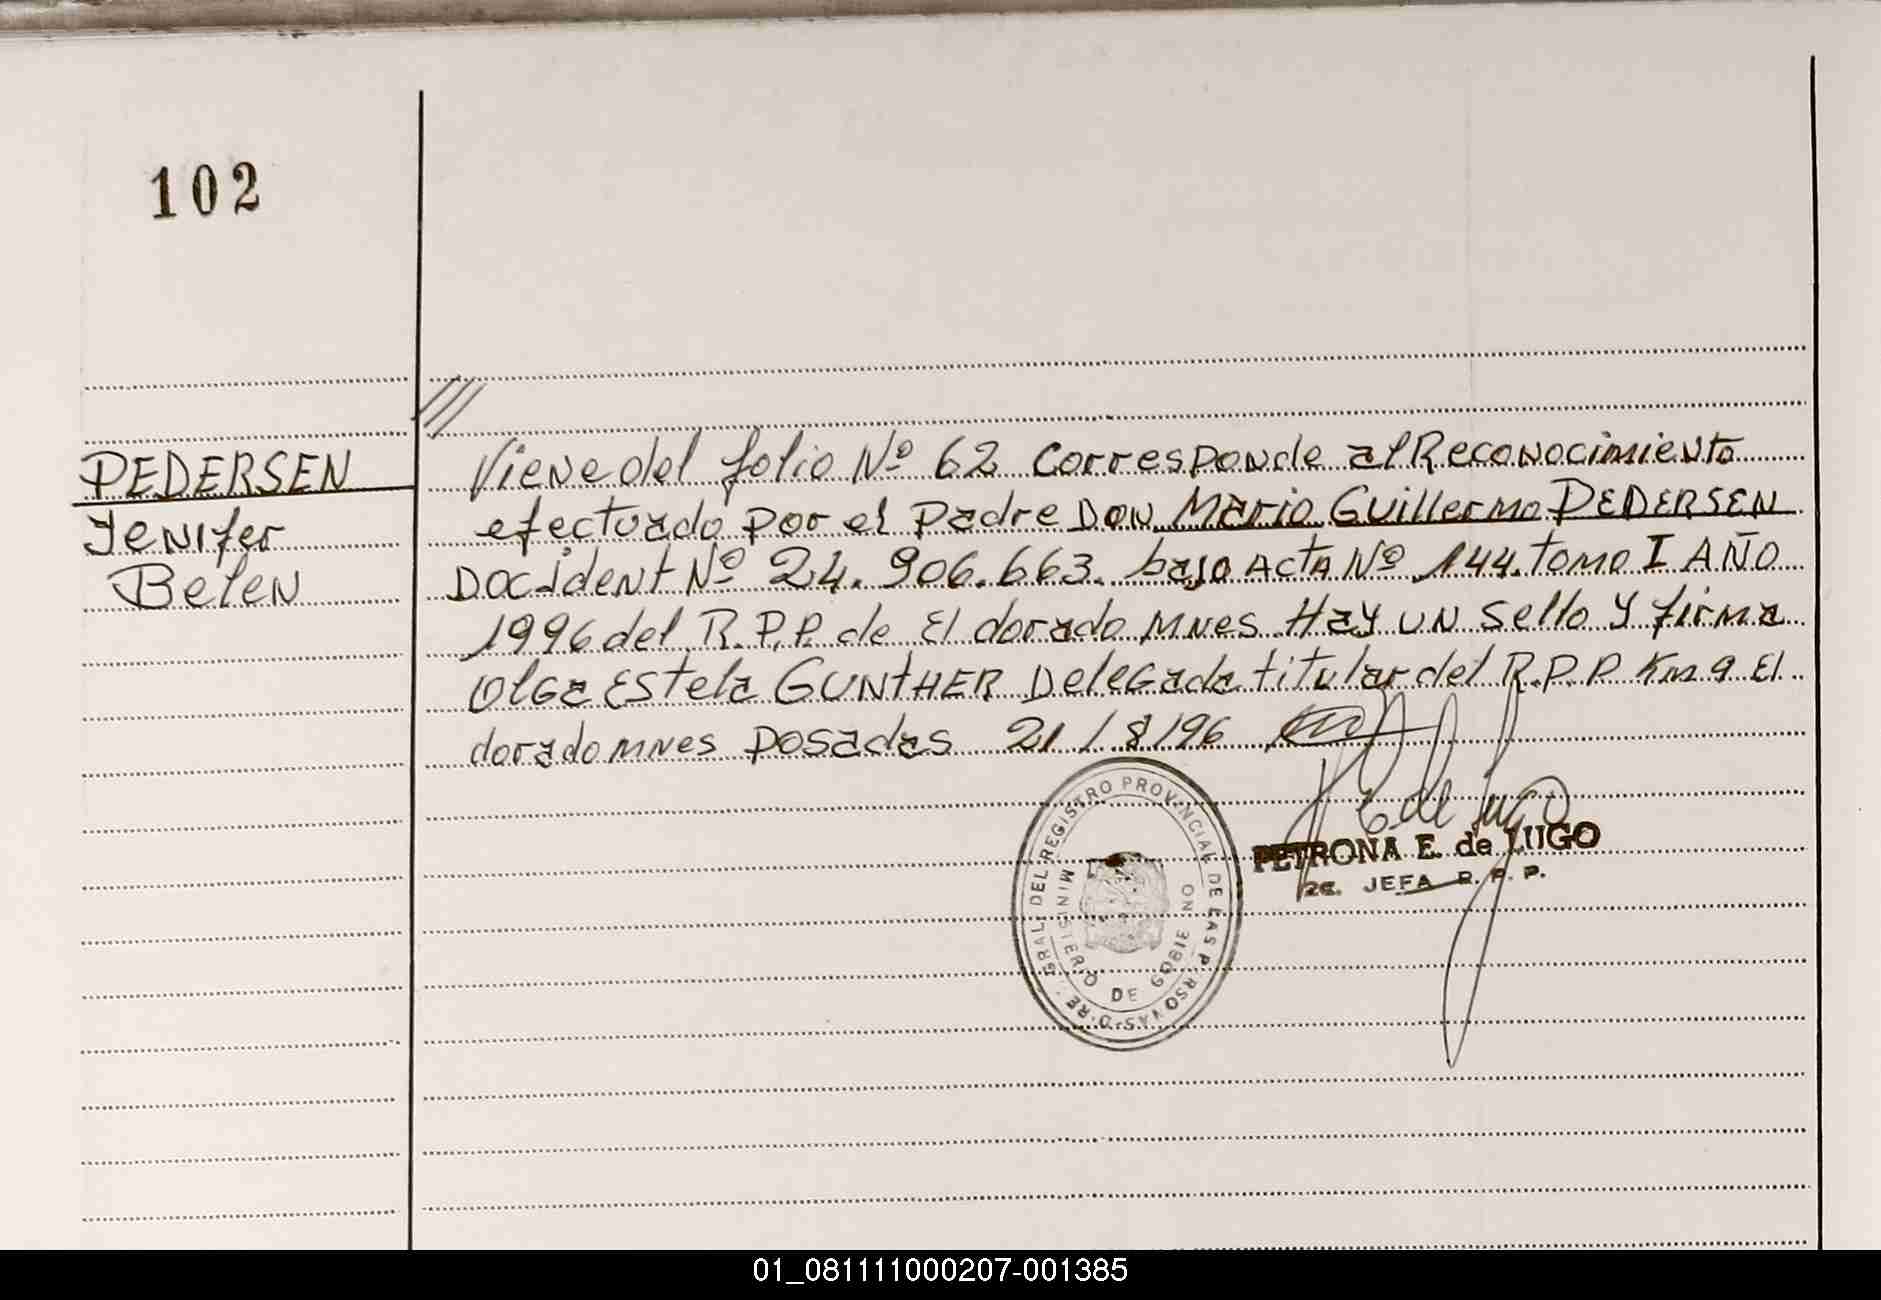 102
PEDERSEN
Jenifer
Belen
Viene del folio Nº 62 corresponde al Reconocimiento
efectuado por el padre Don Mario Guillermo PEDERSEN
Doc. ident Nº 24.906.663. bajo Acta Nº 144. Tomo I AÑO
1996 del R.P.P. de El dorado Mnes. Hay un sello y firma
Olga Estela GUNTHER Delegada titular del R.P.P Km 9 El
dorado Mnes Posadas 21/8/96
E de Lugo
PETRONA E. de LUGO
2ª. JEFA R. P. P.
GRAL. DEL REGISTRO PROVINCIAL DE LAS PERSONAS
MINISTERIO DE GOBIERNO
01_081111000207-001385